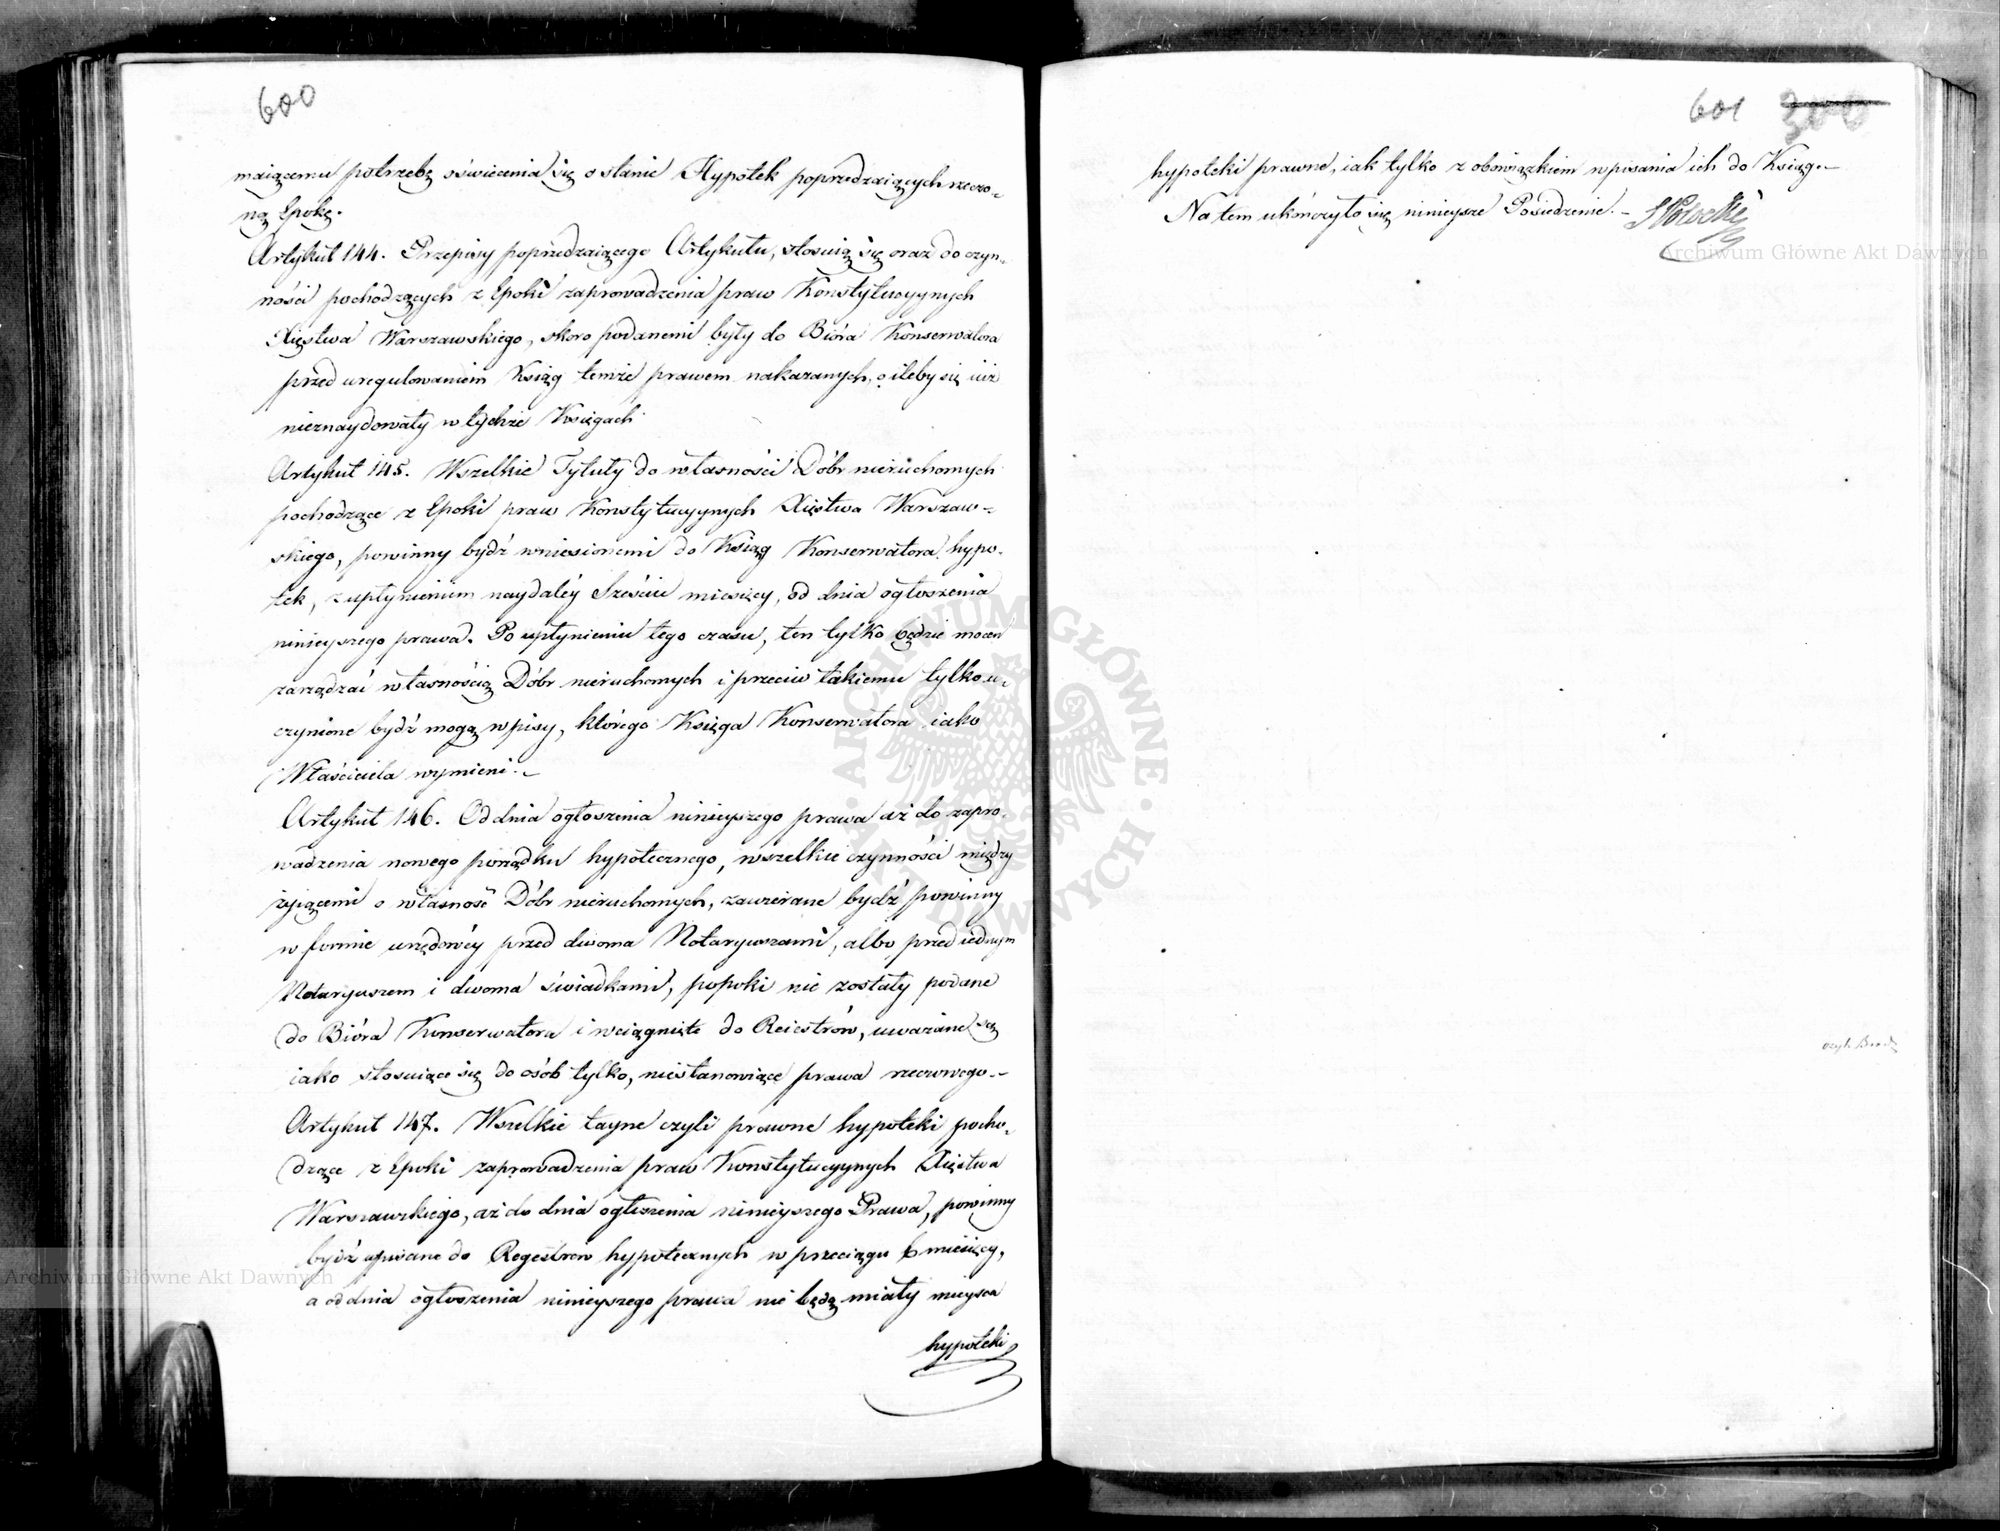 600
maiącemu potrzebę oświecenia się o stanie Hypotek poprzedzaiących rzeczo-
ną Epokę.
Artykuł 144. Przepisy poprzedzaiącego Artykułu, stosuią się oraz do czyn-
ności pochodzących z Epoki zaprowadzenia praw Konstytucyynych
Xięstwa Warszawskiego, skoro podanemi były do Bióra Konserwatora
przed uregulowaniem Xsiąg temże prawem nakazanych, o ileby się iuż
nieznaydowały w tychże Księgach
Artykuł 145. Wszelkie Tytuły do własności Dóbr nieruchomych
pochodzące z Epoki praw Konstytucyynych Xięstwa Warszaw-
skiego, powinny bydź wniesionemi do Ksiąg Konserwatora hypo-
tek, z upłynieniem naydaléy Sześciu miesięcy, od dnia ogłoszenia
ninieyszego prawa. Po upłynieniu tego czasu, ten tylko będzie mocen
zarządzać własnością Dóbr nieruchomych i przeciw takiemu tylko u-
czynione bydź mogą wpisy, którego Księga Konserwatora iako
Właściciela wymieni.-
Artykuł 146. Od dnia ogłoszenia ninieyszego prawa aż do zapro-
wadzenia nowego porządku hypotecznego, wszelkie czynności między
żyiącemi o własność Dóbr nieruchomych, zawierane bydź powinny
w formie urzędowéy przed dwoma Notaryuszami, albo przed iednym
Notaryuszem i dwoma świadkami, popoki nie zostały podane
do Bióra Konserwatora i wciągnięte do Reiestrów, uważane są
iako stosuiące się do osób tylko, niestanowiące prawa rzeczowego.-
Artykuł 147. Wszelkie tayne czyli prawne hypoteki pocho-
dzące z Epoki zaprowadzenia praw Konstytucyynych Xięstwa
Warszawskiego, aż do dnia ogłoszenia ninieyszego Prawa, powinny
bydź wpisane do Regestrów hypotecznych w przeciągu 6 miesięcy,
a od dnia ogłoszenia ninieyszego prawa nie będą miały mieysca
hypoteki
601 300
hypoteki prawne, iak tylko z obowiązkiem wpisania ich do Ksiąg.-
Na tem ukończyło się ninieysze Posiedzenie.- SPotocki
Archiwum Główne Akt Dawnych
ARCHIWUM GŁÓWNE AKT DAWNYCH
Archiwum Główne Akt Dawnych